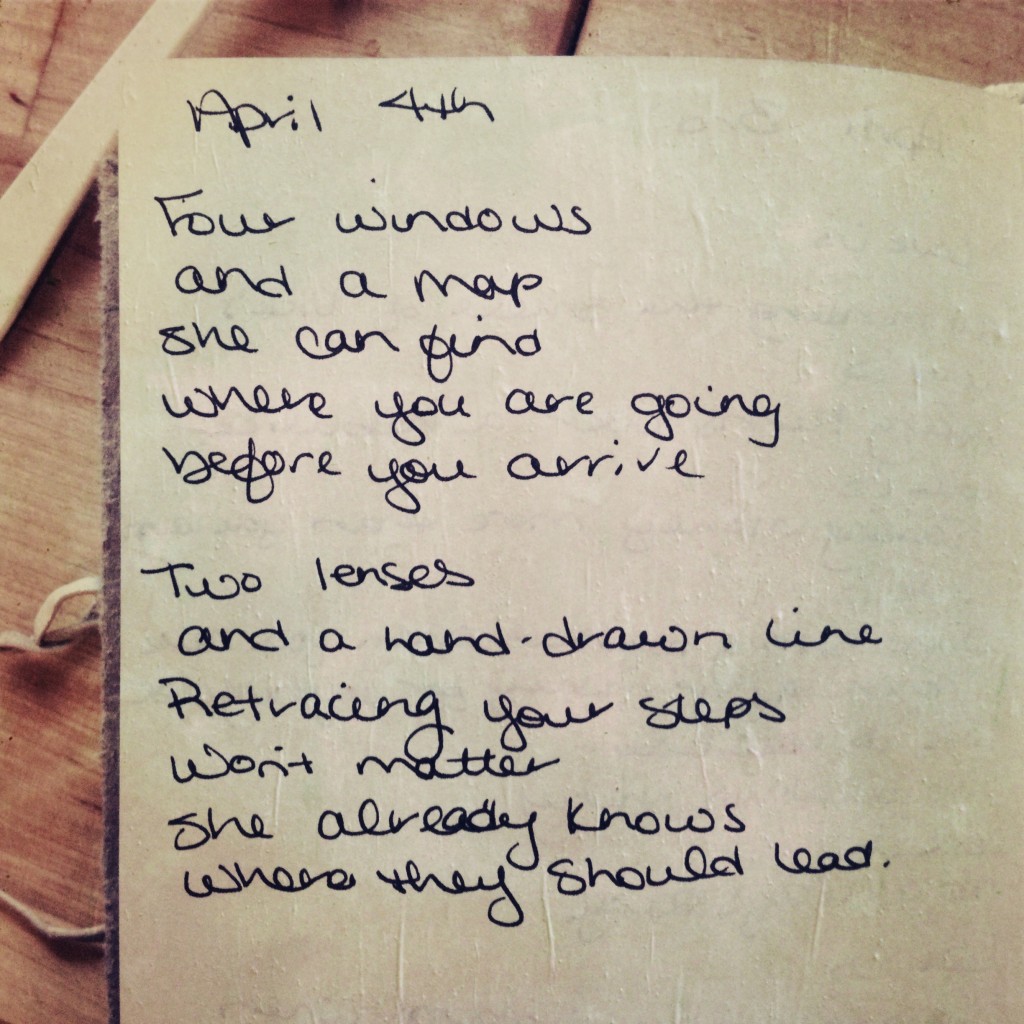 April 4th
Four windows
and a map
she can find
where you are going
before you arrive
Two lenses
and a hand-drawn line
Retracing your steps
Won't matter
she already knows
where they should lead.